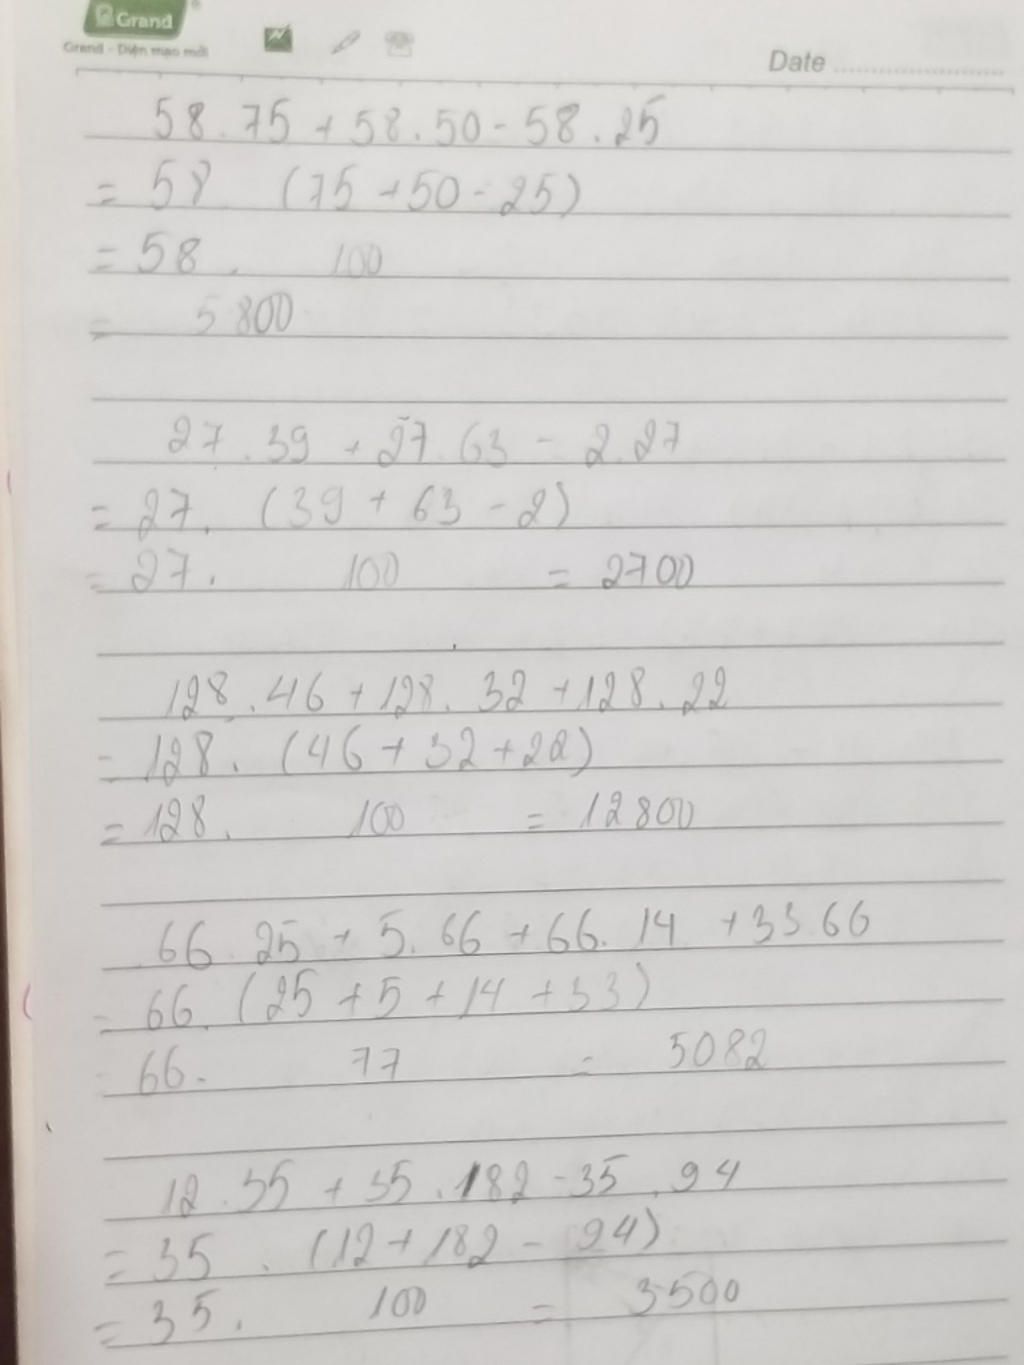 Grand
Grand - Diện mạo mới
Date
58.75 + 58.50 - 58.25
= 58. (75 + 50 - 25)
= 58. 100
= 5800
27.39 + 27.63 - 2.27
= 27. (39 + 63 - 2)
= 27. 100 = 2700
128.46 + 128.32 + 128.22
= 128. (46 + 32 + 22)
= 128. 100 = 12800
66.25 + 5.66 + 66.14 + 33.66
= 66. (25 + 5 + 14 + 33)
= 66. 77 = 5082
12.35 + 35.182 - 35.94
= 35. (12 + 182 - 94)
= 35. 100 = 3500